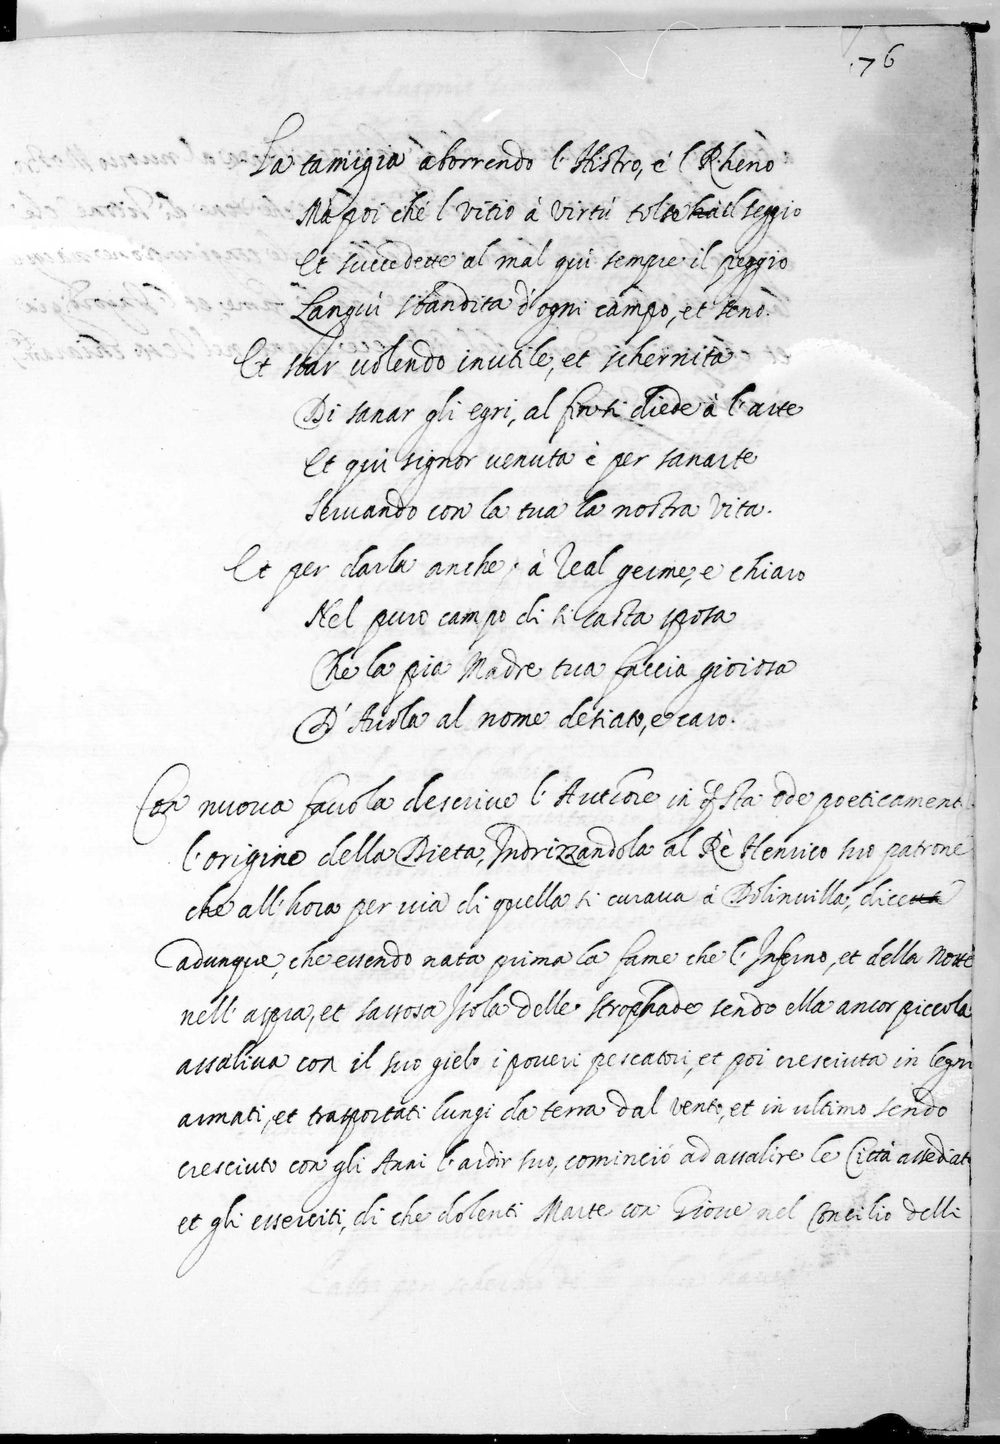 76
La tamigia aborrendo l'Histro, é l Rheno
Ma poi ché l vitio á virtú tolse il seggio
Et succedette al mal qui sempre il peggio
Langui sbandita d'ogni campo, et seno.
Et star volendo inutile, et schernita
Di sanar gli egri, al fin si diede à l'arte
Et qui signor venuta è per sanarte
Servando con la tua la nostra vita.
Et per darla anche à Real germe, e chiaro
Nel puro campo di si casta sposa
Che la pia Madre tua faccia gioiosa
D'Avola al nome desiato, e caro.
Con nuova favola descrive l'Auttore in qsta ode poeticamente
l'origine della Dieta, Indrizzandola al Rè Henrico suo patrone
che all'hora per via di quella si curava á Dolinvilla, dice
adunque, che essendo nata prima la fame che l'Inferno, et della Notte
nell'aspra, et sassosa Isola delle Strophade sendo ella ancor piccola
assaliva con il suo gielo i poveri pescatori, et poi cresciuta in legni
armati, et trasportati lungi da terra dal vento, et in ultimo sendo
cresciuto con gli Anni l'ardir suo, cominció ad assalire le Città assediate
et gli esserciti, di che dolenti Marte con Giove nel Concilio delli